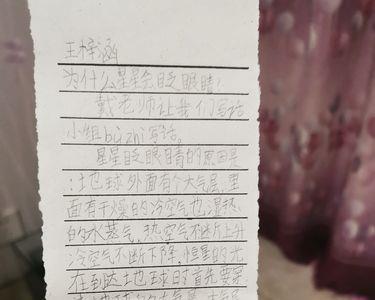 王梓涵
为什么星星会眨眼睛？
戴老师让我们写话
小组bùzhì写话。
星星眨眼睛的原因是
：地球外面有个大气层，里
面有干燥的冷空气也湿热
的水蒸气，热空气不断上升
冷空气不断下降，恒星的光
在到达地球时首先要穿